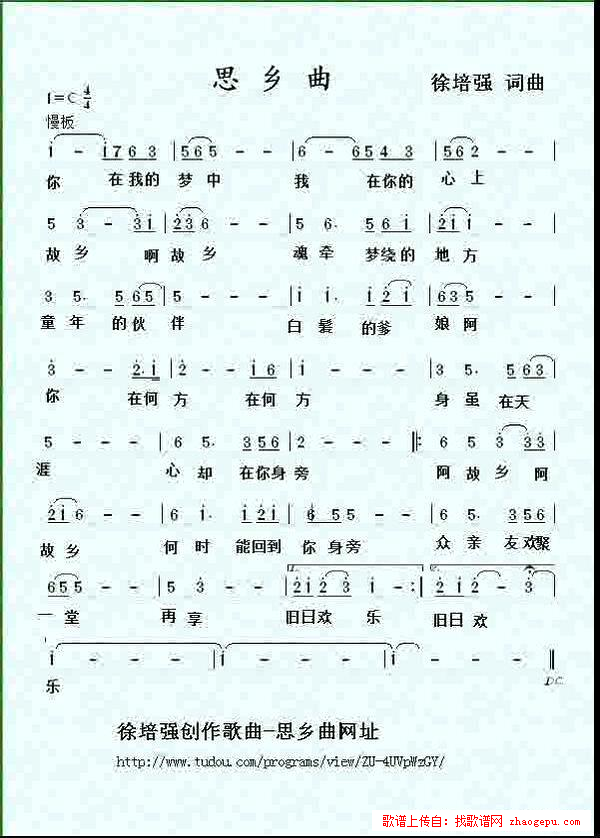 思乡曲
徐培强 词曲
1=C 4/4
慢板
i - i763 | 565 - - | 6 - 6543 | 562 - - |
你 在我的 梦中 我 在你的 心上
5 3 - 3i | 236 - - | 5 6. 561 | 2ii - - |
故乡 啊故乡 魂牵 梦绕的 地方
3 5. 565 | i - - - | i i. i2i | 635 - - |
童年 的伙 伴 白髮 的爹 娘阿
3 - - 2.i | 2 - - i6 | i - - - | 3 5. 563 |
你 在何方 在何方 身虽 在天
5 - - - | 6 5. 356 | 2 - - - :|: 6 5 3 33 |
涯 心却 在你身旁 阿故乡阿
2i6 - - | 6 i. i2i | 655 - - | 6 5. 356 |
故乡 何时 能回到 你身旁 众亲 友欢聚
655 - - | 5 3 - - | 2i23 - :| 2i2 - 3 |
一堂 再享 旧日欢 乐 旧日欢
i - - - | i - - - | i - - ‖
乐
D.C.
徐培强创作歌曲-思乡曲网址
http://www.tudou.com/programs/view/ZU-4UVpWzGY/
歌谱上传自：找歌谱网 zhaogepu.com